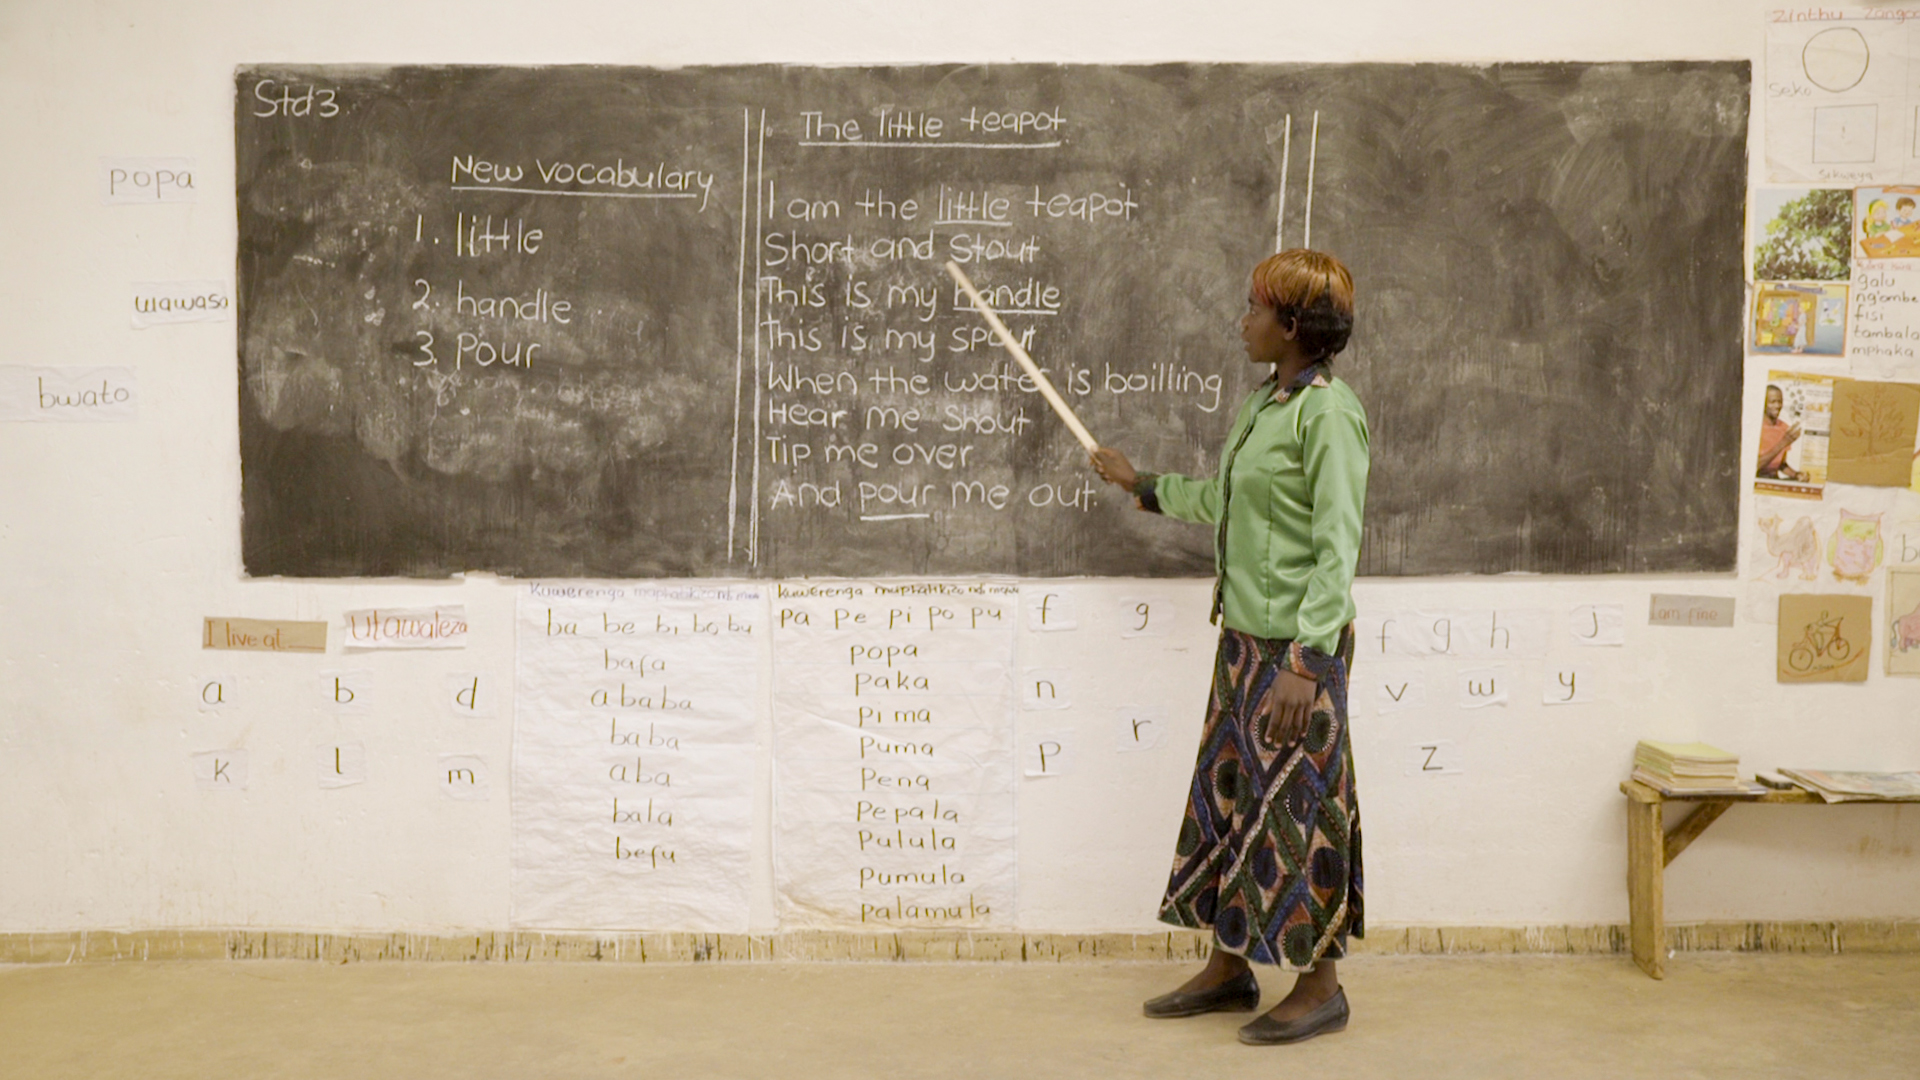 Std 3
New vocabulary
1. little
2. handle
3. Pour
The little teapot
I am the little teapot
Short and Stout
This is my handle
This is my spout
When the water is boilling
Hear me Shout
Tip me over
And pour me out.
popa
wawasa
bwato
I live at
Utawaleza
a b d
k l m
ba be bi bo bu
bafa
ababa
baba
aba
bala
befu
kuwerenga
pa pe pi po pu
popa
paka
pima
puma
pena
pepala
pulula
pumula
palamula
f g
n
r
p
f g h j
v w y
z
I am fine
Zinthu
Seko
Sikweya
galu
ng'ombe
fisi
tambala
mphaka